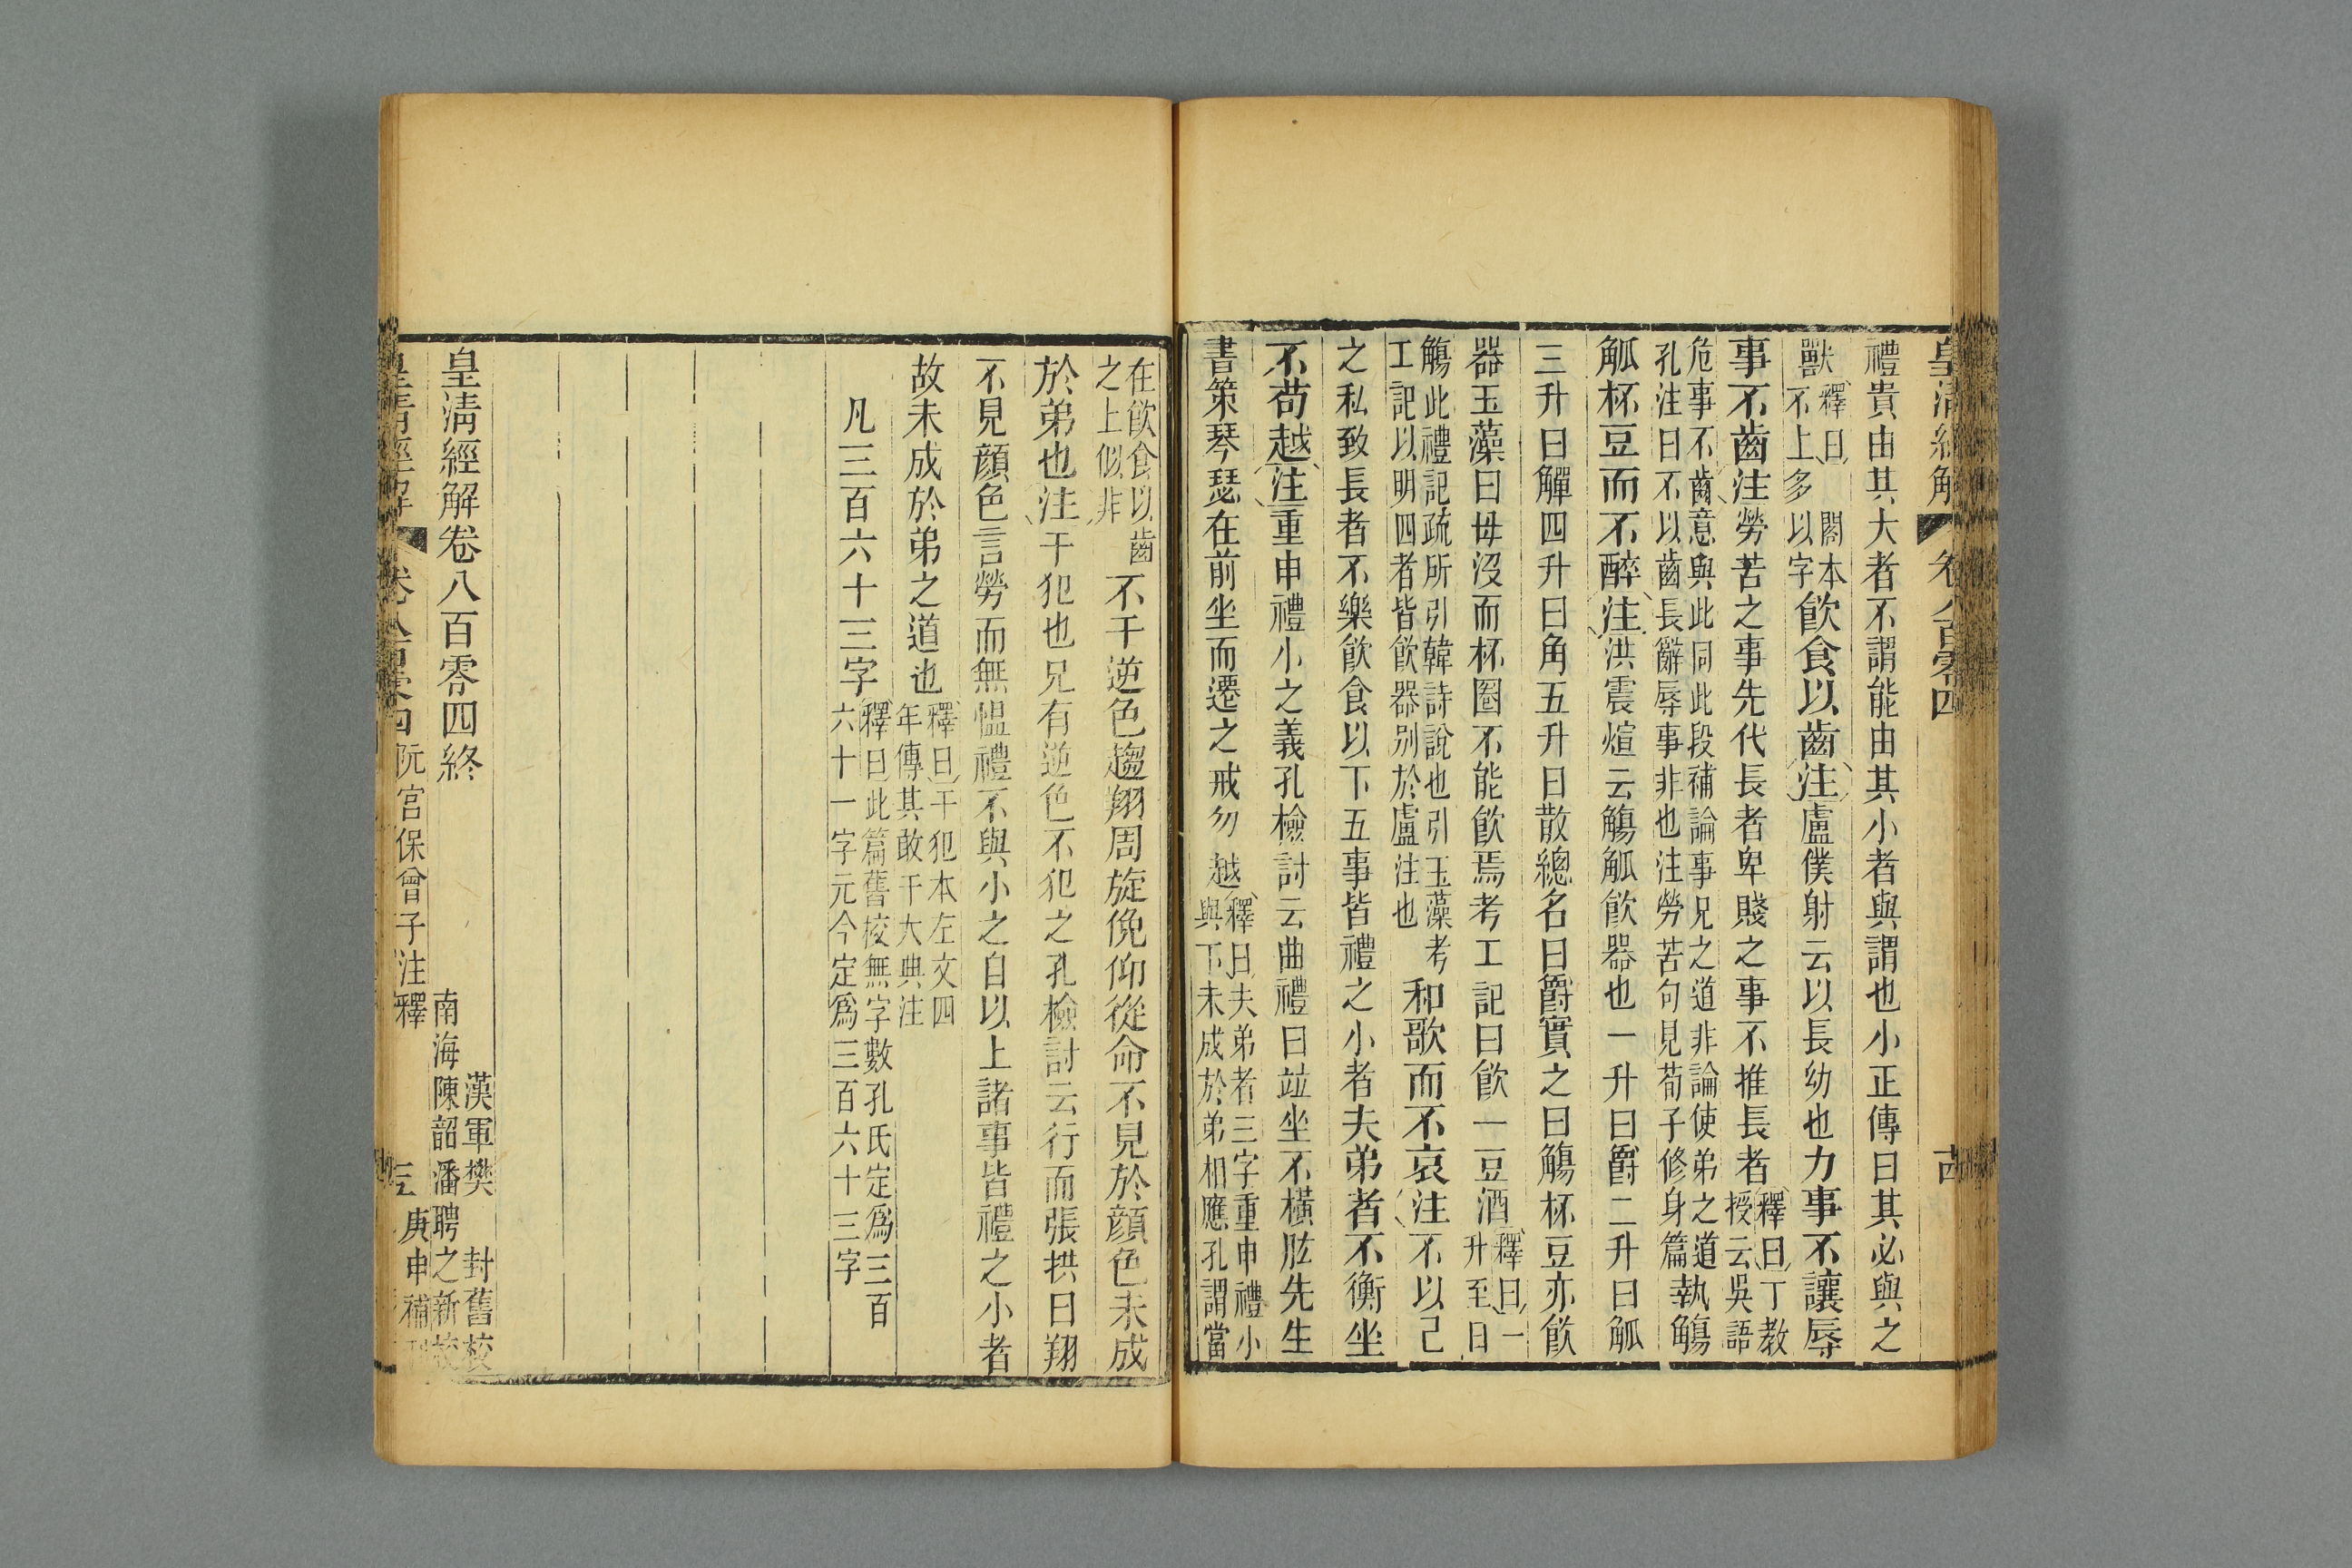 皇清經解 卷八百零四
禮貴由其大者不謂能由其小者與謂也小正傳曰其必與之
獸釋曰閣本不上多以字飲食以齒注盧僕射云以長幼也力事不讓辱
事不齒注勞苦之事先代長者卑賤之事不推長者釋曰丁教授云吳語
危事不齒意與此同此段補論事兄之道非論使弟之道孔注曰不以齒長辭辱事非也注勞苦句見荀子修身篇執觴
觚杯豆而不醉注洪震煊云觴觚飲器也一升曰爵二升曰觚
三升曰觶四升曰角五升曰散總名曰爵實之曰觴杯豆亦飲
器玉藻曰毋沒而杯圈不能飲焉考工記曰飲一豆酒釋曰一升至曰
觴此禮記疏所引韓詩說也引玉藻考工記以明四者皆飲器別於盧注也和歌而不哀注不以己
之私致長者不樂飲食以下五事皆禮之小者夫弟者不衡坐
不苟越注重申禮小之義孔檢討云曲禮曰竝坐不橫肱先生
書策琴瑟在前坐而遷之戒勿越釋曰夫弟者三字重申禮小與下未成於弟相應孔謂當
在飲食以齒之上似非不干逆色趨翔周旋俛仰從命不見於顏色未成
於弟也注干犯也兄有逆色不犯之孔檢討云行而張拱曰翔
不見顏色言勞而無慍禮不與小之自以上諸事皆禮之小者
故未成於弟之道也釋曰干犯本左文四年傳其敢干大典注
凡三百六十三字釋曰此篇舊校無字數孔氏定爲三百六十一字元今定爲三百六十三字
皇清經解卷八百零四終
漢軍樊封舊校
南海陳韶潘聘之新校
皇清經解 卷八百零四 阮宮保曾子注釋 庚申補刊